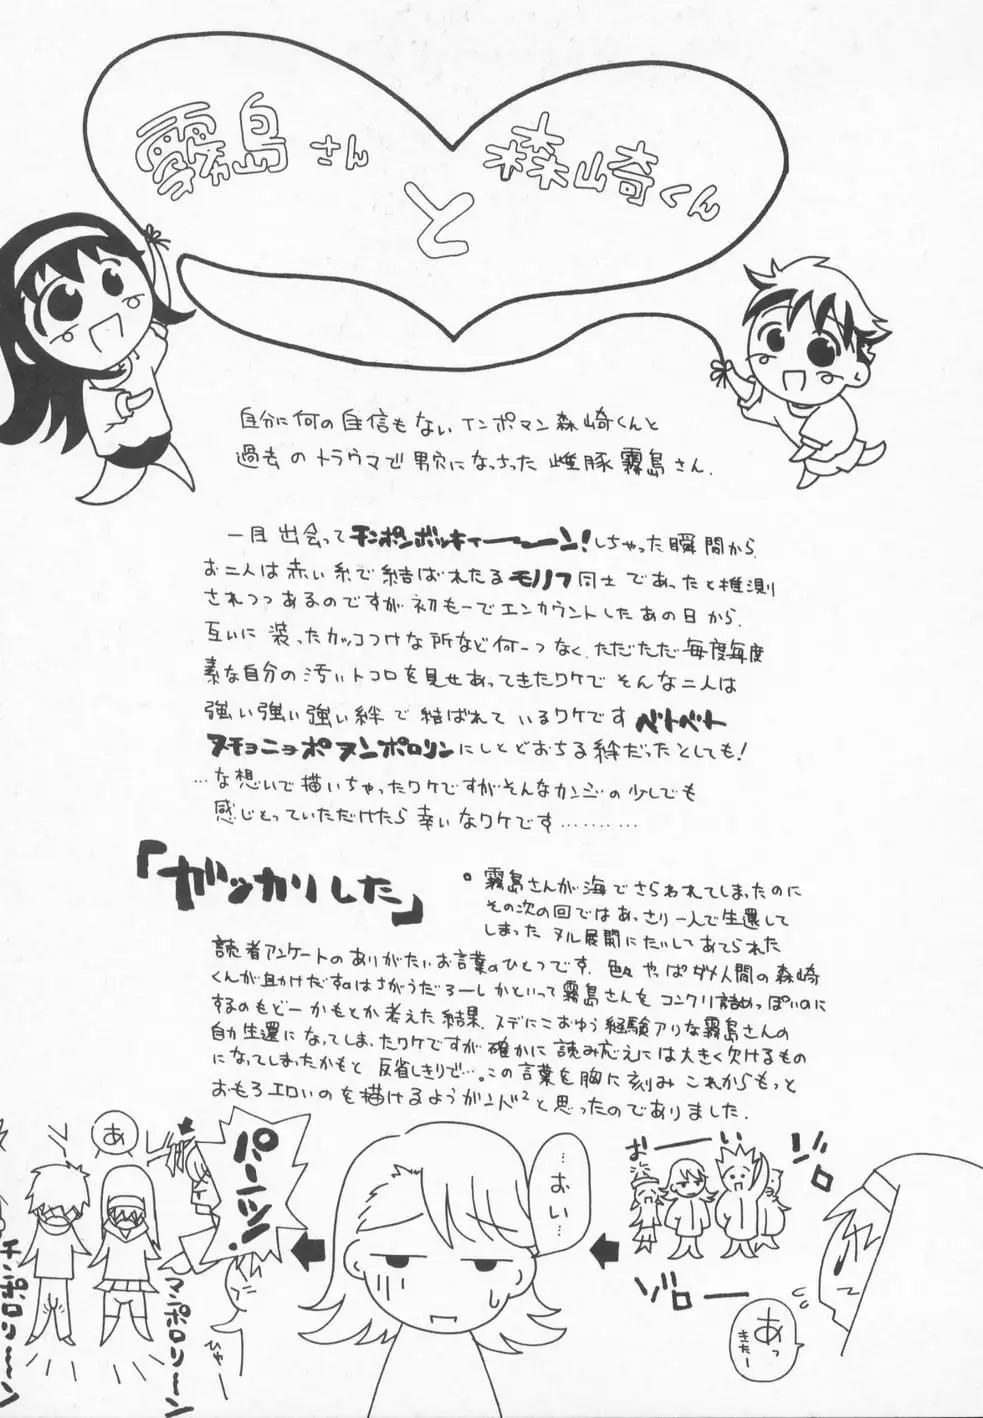 霧島さん
と
森崎くん
自分に何の自信もないインポマン森崎くんと
過去のトラウマで男穴になっちった雌豚霧島さん.
一目出会ってチンポンボッキィーーーン!しちゃった瞬間から.
お二人は赤い糸で結ばれたるモノノフ同士であったと推測
されつつあるのですが初もーでエンカウントしたあの日から.
互いに装ったカッコつけな所など何一つなく.ただただ毎度毎度
素な自分の汚いトコロを見せあってきたワケでそんな二人は
強い強い強い絆で結ばれているワケですベトベト
ヌチョニョポヌンポロリンにしとどおちる絆だったとしても!
…な想いで描いちゃったワケですがそんなカンジの少しでも
感じとっていただけたら幸いなワケです………
「ガッカリした」
霧島さんが海でさらわれてしまったのに
その次の回ではあっさり一人で生還して
しまったヌル展開にたいしてあてられた
読者アンケートのありがたいお言葉のひとつです.色々やっぱダメ人間の森崎
くんが助けだすのはさがうだろーしかといって霧島さんをコンクリ詰めっぽいのに
するのもどーかもとか考えた結果.スデにこおゆう経験アリな霧島さんの
自力生還になってしまったワケですが確かに読み応えには大きく欠けるもの
になってしまったかもと反省しきりで…。この言葉を胸に刻みこれからもっと
おもろエロいのを描けるようがんば²と思ったのでありました.
おーーい
ゾロ
ゾロー
あっ
きたー
…おい…
パーンツ!
ひゃー
あ
マンポロリーン
チンポロリーン